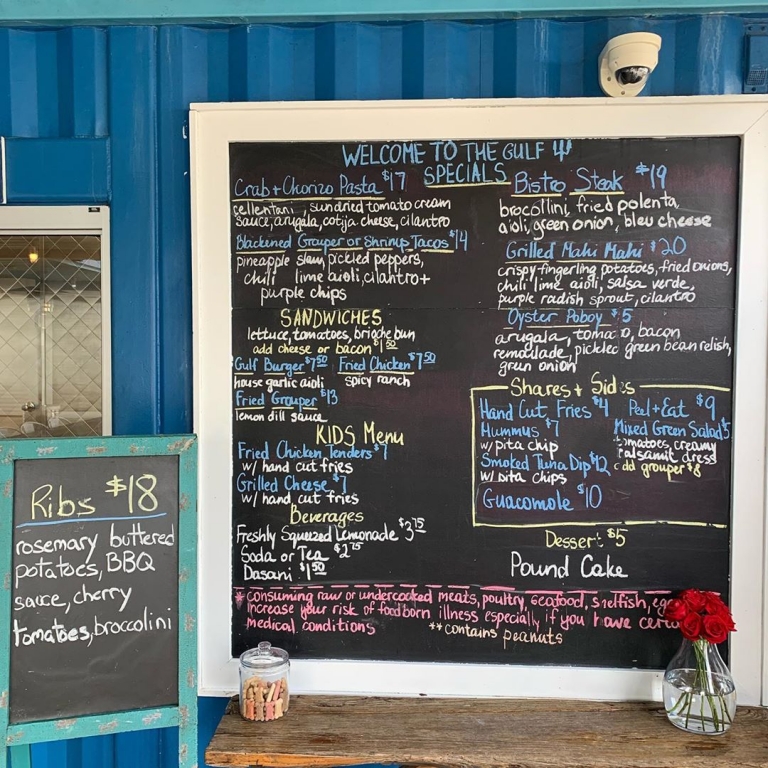 WELCOME TO THE GULF
SPECIALS
Crab + Chorizo Pasta $17
cellentani, sundried tomato cream
sauce, arugala, cotija cheese, cilantro
Blackened Grouper or Shrimp Tacos $14
pineapple slaw, pickled peppers,
chili lime aioli, cilantro +
purple chips
SANDWICHES
lettuce, tomatoes, brioche bun
add cheese or bacon $1.50
Gulf Burger $7.50 Fried Chicken $7.50
house garlic aioli spicy ranch
Fried Grouper $13
lemon dill sauce
KIDS Menu
Fried Chicken Tenders $7
w/ hand cut fries
Grilled Cheese $7
w/ hand cut fries
Beverages
Freshly Squeezed Lemonade $3.75
Soda or Tea $2.75
Dasani $1.50
Bistro Steak $19
brocollini, fried polenta,
aioli, green onion, bleu cheese
Grilled Mahi Mahi $20
crispy fingerling potatoes, fried onions,
chili lime aioli, salsa verde,
purple radish sprout, cilantro
Oyster Poboy $15
arugala, tomato, bacon
remoulade, pickled green bean relish,
green onion
Shares + Sides
Hand Cut Fries $4
Hummus $7
w/ pita chip
Smoked Tuna Dip $12
w/ pita chips
Guacomole $10
Peel + Eat $9
Mixed Green Salad $5
tomatoes, creamy
balsamic dress
add grouper $8
Dessert $5
Pound Cake
* consuming raw or undercooked meats, poultry, seafood, shelfish,
increase your risk of foodborn illness especially if you have
medical conditions ** contains peanuts
Ribs $18
rosemary buttered
potatoes, BBQ
sauce, cherry
tomatoes, broccolini